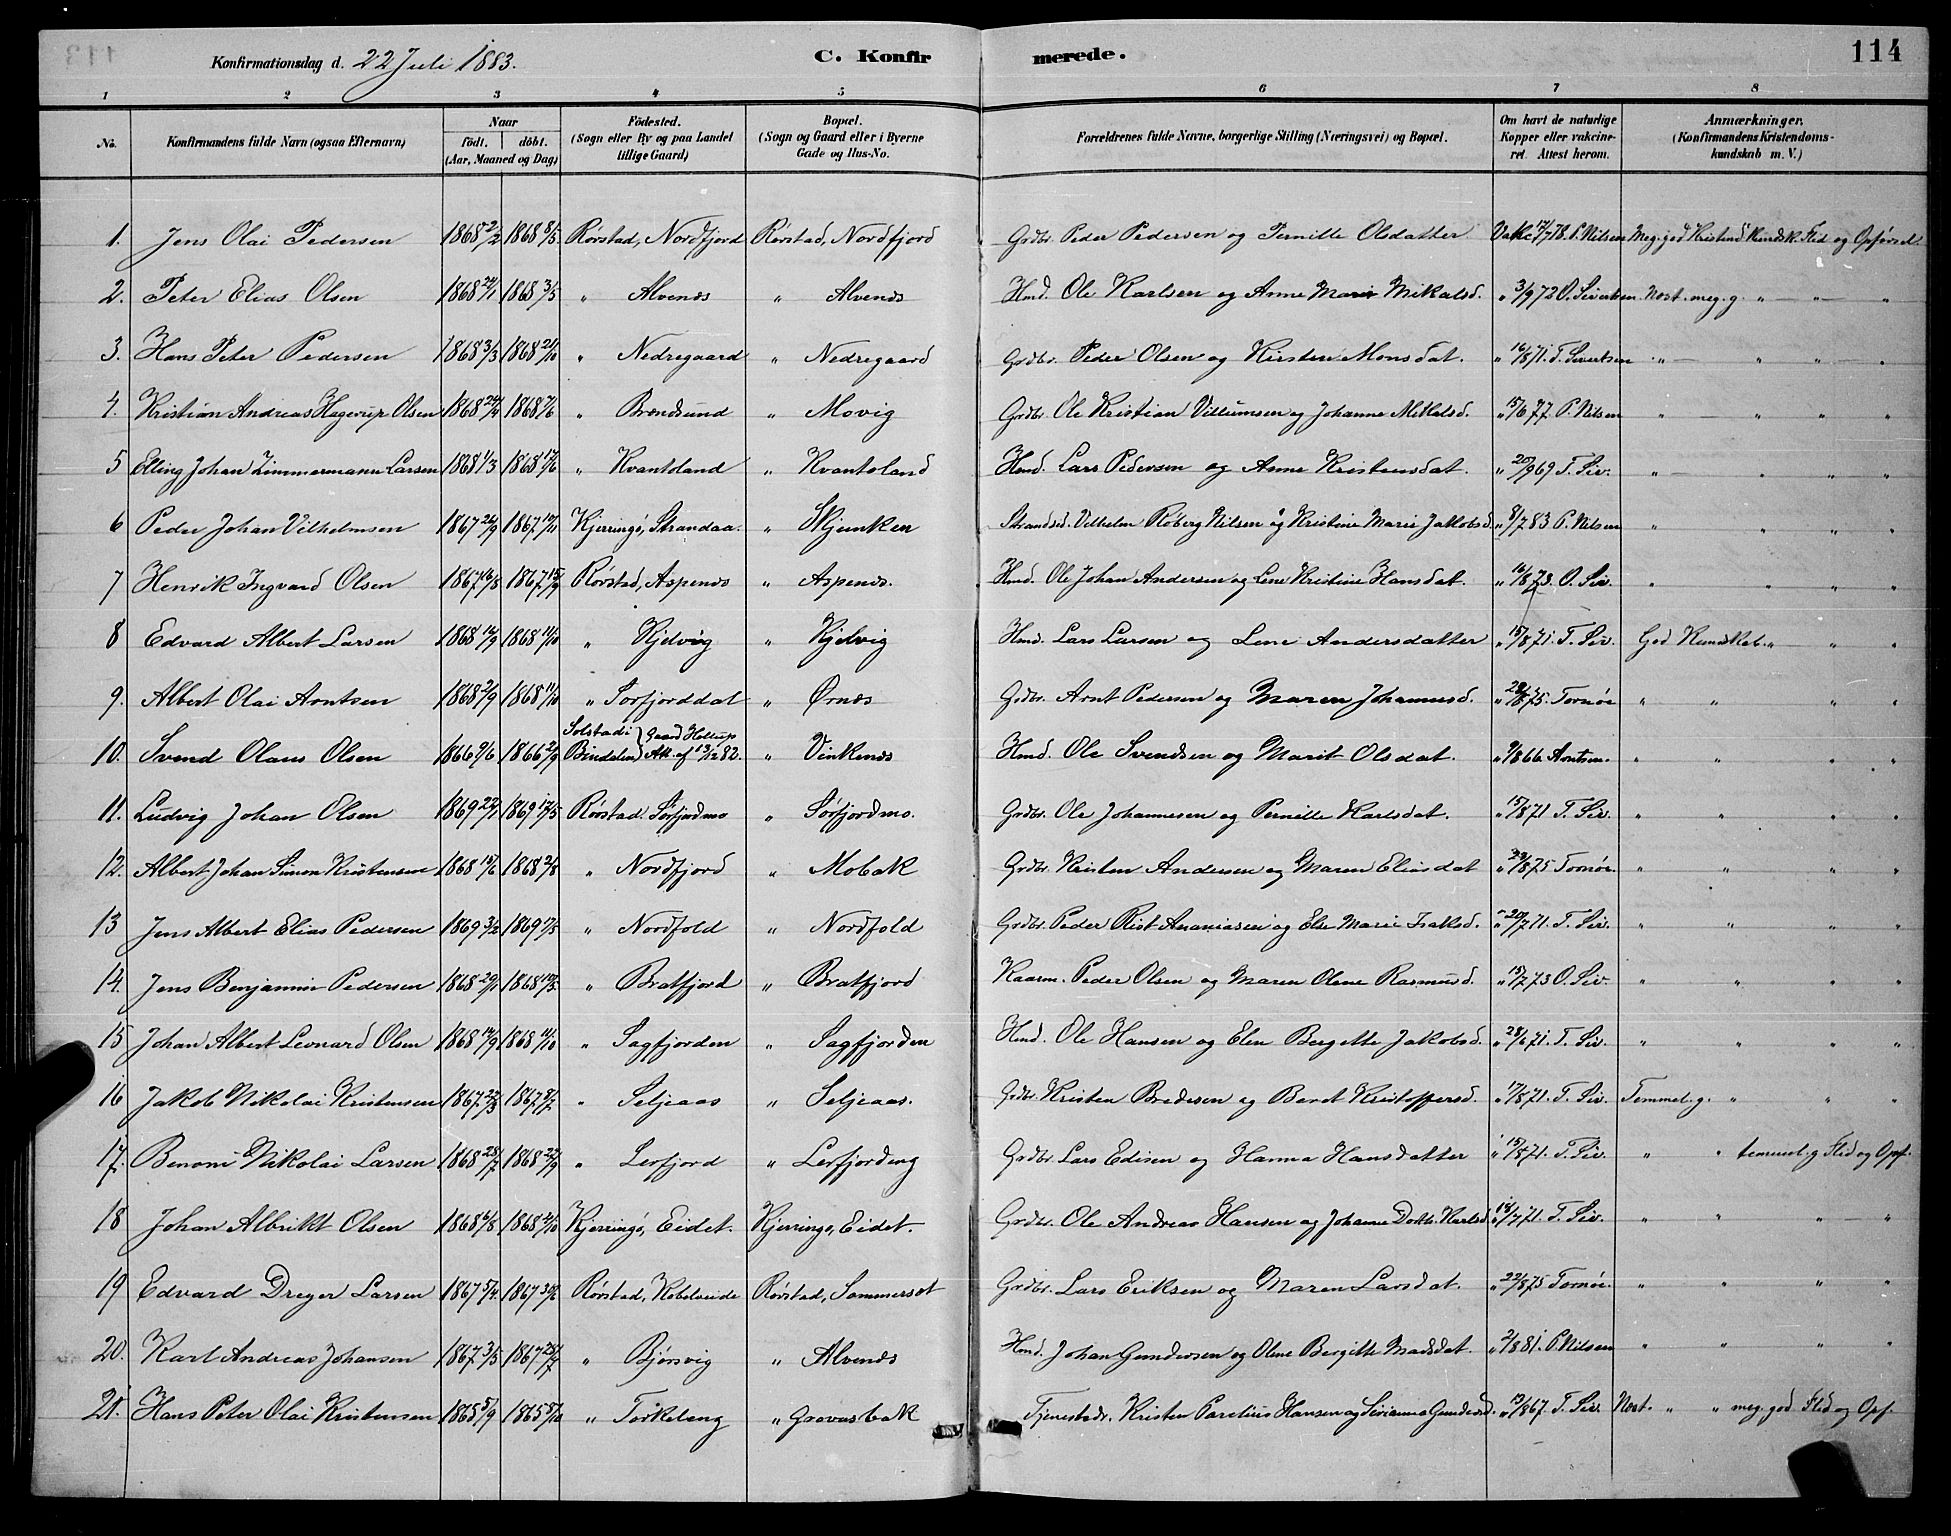 Konfirmationsdag d. 22 Juli 1883. C. Konfirmerede. 114
1 2 3 4 5 6 7 8
No. Konfirmandens fulde Navn (ogsaa Efternavn) Naar födt. döbt. (Aar, Maaned og Dag) Födested. (Sogn eller By og paa Landet tillige Gaard) Bopæl. (Sogn og Gaard eller i Byerne Gade og Hus-No. Forældrenes fulde Navne, borgerlige Stilling (Næringsvei) og Bopæl. Om havt de naturlige Kopper eller vakcineret. Attest herom. Anmærkninger. (Konfirmandens Kristendomskundskab m. V.)
1. Jens Olai Pedersen 1868 2/2 1868 8/5 Rørstad, Nordfjord Rørstad, Nordfjord Grdbr. Peder Pedersen og Pernille Olsdatter Vakc 17/7 78. P. Nilsen Meg. god Kristend. Kundsk. Flid og Opførsel
2. Peter Elias Olsen 1868 24/1 1868 3/5 " Alvenes " Alvenes Hmd. Ole Karlsen og Anne Marie Mikalsd. " 3/9 72 O. Sivertsen Nost. meg. g. " — " — "
3. Hans Peter Pedersen 1868 3/3 1868 21/10 " Nedregaard " Nedregaard Grdbr. Peder Olsen og Kirsten Monsdat. " 16/8 71. T. Sivertsen " — " " "
4. Kristian Andreas Hagerup Olsen 1868 24/4 1868 7/6 " Brændsund " Movig Grdbr. Ole Kristian Villumsen og Johanne Mikalsd. " 15/6 77 P. Nilsen " — " " "
5 Elling Johan Zimmermann Larsen 1868 1/3 1868 17/6 " Kvantoland " Kvantoland Hmd. Lars Pedersen og Anne Kristensdat. " 20/9 69 T. Siv. " — " " "
6 Peder Johan Vilhelmsen 1867 26/9 1867 10/11 Kjerringø, Strandaa. " Skjunken Strandsid. Vilhelm Røberg Nilsen og Kristine Marie Jakobsd. " 8/7 83 P. Nilsen " " " "
7 Henrik Ingvard Olsen 1867 16/8 1867 15/9 Rørstad, Aspenes " Aspenes. Hmd. Ole Johan Andersen og Lene Kristine Hansdat. " 16/8 73. O. Siv. " " " "
8 Edvard Albert Larsen 1868 14/9 1868 11/10 " Kjelvig " Kjelvig Hmd. Lars Larsen og Lene Andersdatter " 15/8 71. T. Siv. God Kundskab. " — " "
9. Albert Olai Arntsen 1868 2/9 1868 11/10 " Sørfjorddal " Ørnes Grdbr. Arnt Pedersen og Maren Johannesd. " 28/8 75. Tornøe " " " "
10. Svend Olaus Olsen 1866 9/6 1866 2/9 Solstad i Bindalen Gaard Holtup Att. af 13/12 82. " Vinkenes Hmd. Ole Svendsen og Marit Olsdat. " 9/8 66 Arntsen. " " " "
11. Ludvig Johan Olsen 1869 22/1 1869 17/5 Rørstad. Sørfjordmo " Sørfjordmo. Grdbr. Ole Johannesen og Pernille Karlsdat. " 15/8 71 T. Siv. " " " "
12. Albert Johan Simon Kristensen 1868 19/6 1868 2/8 " Nordfjord " Mobak Grdbr. Kristen Andersen og Maren Eliasdat " 29/8 75 Tornøe. " " " "
13 Jens Albert Elias Pedersen 1869 3/2 1869 17/5 " Nordfold " Nordfold Grdbr. Peder Rist Ananiasen og Else Marie Isaksd. " 20/7 71. T. Siv. " " " "
14. Jens Benjamin Pedersen 1868 29/1 1868 10/5 " Bratfjord " Bratfjord Kaarm. Peder Olsen og Maren Olene Rasmusd. " 15/7 73 O. Siv. " " " "
15 Johan Albert Leonard Olsen 1868 14/9 1868 11/10 " Sagfjorden " Sagfjorden Hmd. Ole Hansen og Elen Bergitte Jakobsd. " 28/6 71. T. Siv. " " " "
16 Jakob Nikolai Kristensen 1867 23/3 1867 8/7 " Seljeaas " Seljeaas. Grdbr. Kristen Bredesen og Beret Kristoffersd. " 17/8 71. T. Siv. Temmel. g. " " "
17. Benoni Nikolai Larsen 1868 28/7 1868 27/9 " Lerfjord " Lerfjordeng Grdbr. Lars Edisen og Hanna Hansdatter " 15/8 71. T. Siv. " " temmel. g Flid og Opf.
18 Johan Albrikt Olsen 1868 6/8 1868 21/10 Kjerringø, Eidet. Kjerringø, Eidet. Grdbr. Ole Andreas Hansen og Johanne Dorth. Karlsd. " 18/7 71. T. Siv. " " " — "
19 Edvard Dreyer Larsen 1867 5/4. 1867 30/6 Rørstad, Kobelveide Rørstad, Sommerset Grdbr. Lars Eriksen og Maren Larsdat. " 22/8 75 Tornøe. " " " "
20. Karl Andreas Johansen 1867 3/5 1867 28/7 " Bjørsvig " Alvenes Hmd. Johan Gundersen og Olene Bergitte Madsdat. " 2/8 81. P. Nilsen " " " "
21. Hans Peter Olai Kristensen 1865 5/9 1865 8/10 " Torkeleng " Grovusbak Tjenestedr. Kristen Parelius Hansen og Sirianna Gundersd. " 13/8 67. T. Siv. Nost. " " meg. god Flid og Opf.